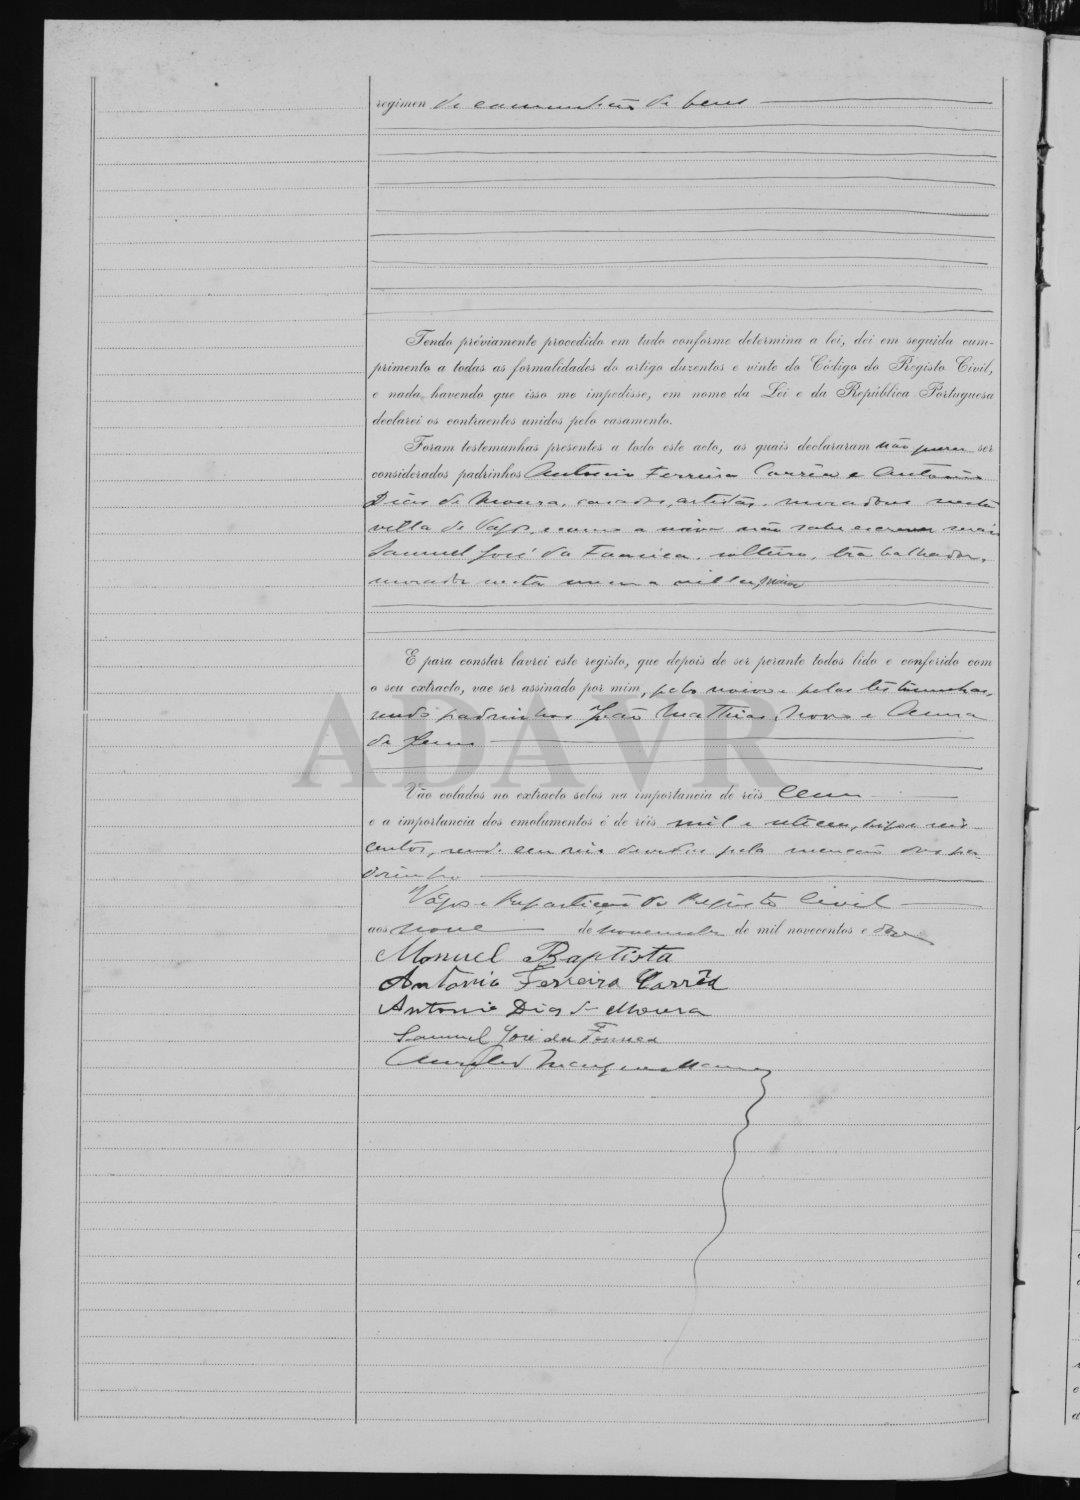 regimen de communhão de bens
Tendo préviamente procedido em tudo conforme determina a lei, dei em seguida cum-
primento a todas as formalidades do artigo duzentos e vinte do Código do Registo Civil,
e nada havendo que isso me impedisse, em nome da Lei e da República Portuguesa
declarei os contraentes unidos pelo casamento.
Foram testemunhas presentes a todo este acto, as quais declararam não querer ser
considerados padrinhos Antonio Ferreira Corrêa e Antonio
Dias de Moura, casados, artistas, moradores nesta
villa de Vagos, e como a noiva não sabe escrever mais
Samuel José da Fonseca, solteiro, trabalhador,
morador nesta mesma villa
E para constar lavrei este registo, que depois de ser perante todos lido e conferido com
o seu extracto, vae ser assinado por mim, pelo noivo e pelas testimunhas,
sendo padrinhos João Mathias Novo e Anna
de Jesus
Vão colados no extracto selos na importancia de réis Cem
e a importancia dos emolumentos é de réis mil e
centos, sendo cem reis devidos pela menção dos pa-
drinhos
Vagos e Repartição do Registo Civil
aos nove de novembro de mil novecentos e doze
Manuel Baptista
Antonio Ferreira Corrêa
Antonio Dias de Moura
Samuel José da Fonseca
Marques
ADAVR